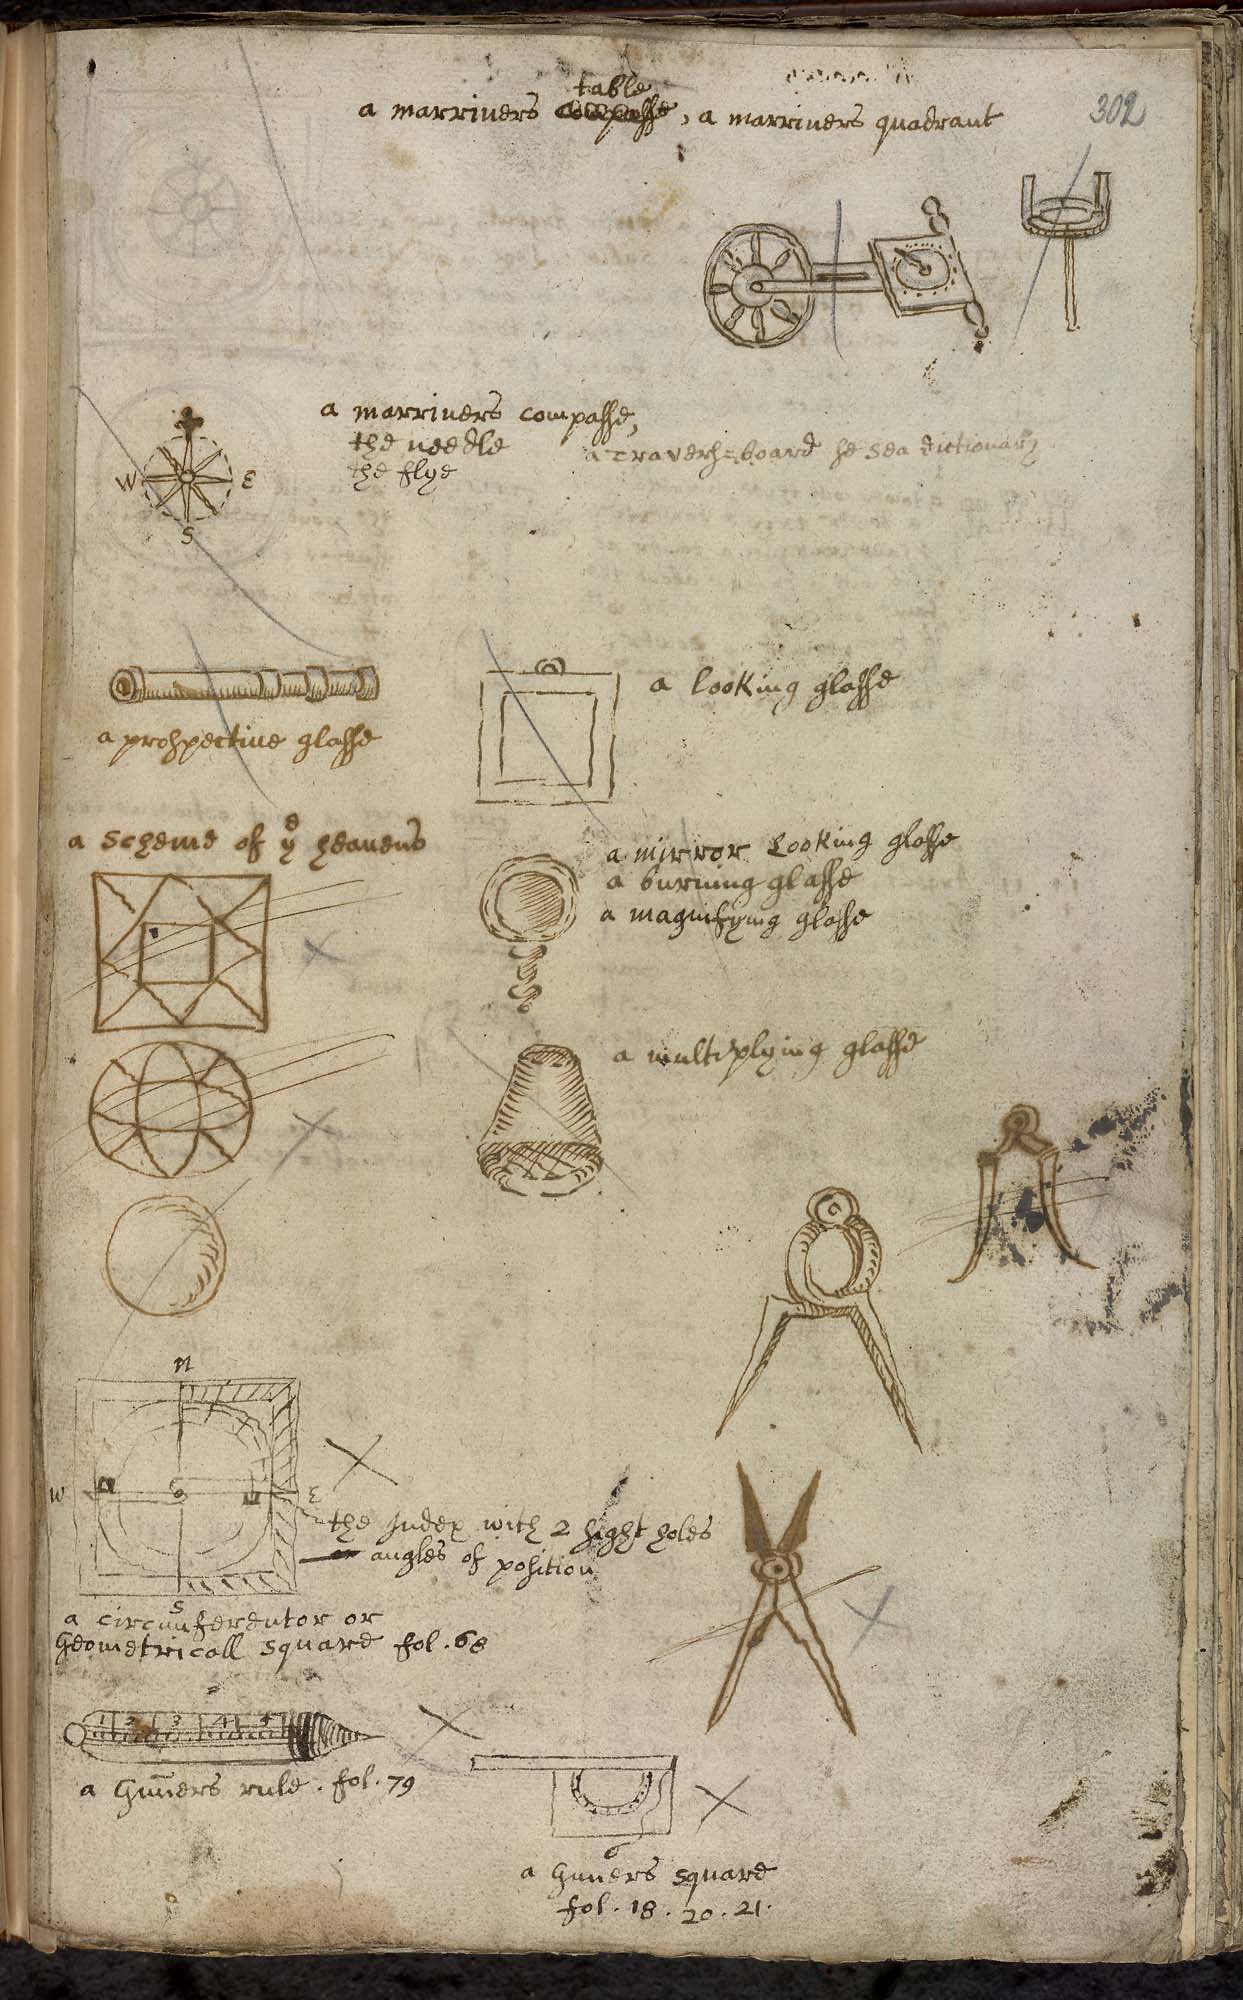 302
table
a marriners compasse, a marriners quadrant
a marriners compasse,
the needle
the flye
a Travers=board se Sea dictionary
W E
S
a prospective glasse
a looking glasse
a scheme of ye heavens
a mirror Looking glasse
a burning glasse
a magnifying glasse
a multiplying glasse
N
W E
S
the Index with 2 sight holes
angles of position
a circumferentor or
Geometricall square fol. 68
1 2 3 4 5
a Gunners rule. fol. 79
a Gunners square
fol. 18. 20. 21.